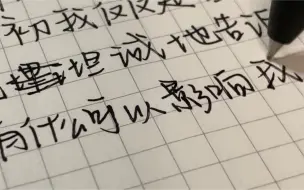 初我仅仅是
坦诚地告诉
有什么可以影响我